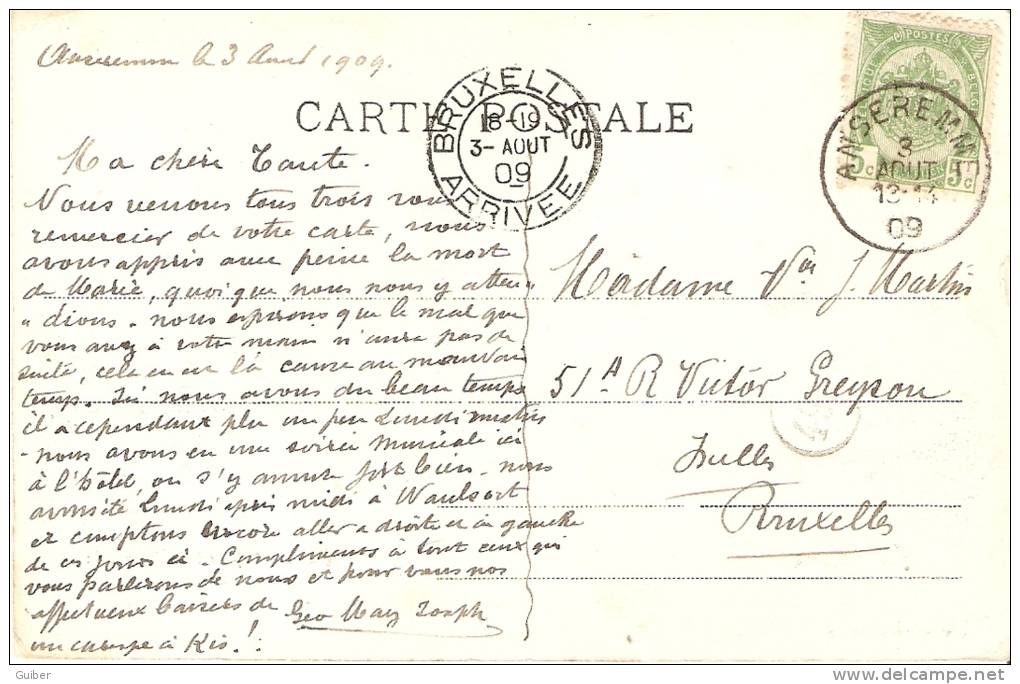 Anseremme le 3 Août 1909.
CARTE POSTALE
BRUXELLES
18-19
3-AOUT
09
ARRIVEE
POSTES
BELGIQUE BELGIË
5c 5c
ANSEREMME
3
AOUT
13-14
09
Ma chère Tante.
Nous venons tous trois vous
remercier de votre carte, nous
avons appris avec peine la mort
de Marie, quoique nous nous y atten-
"dions. nous espérons que le mal que
vous avez à votre main n'aura pas de
suite, cela en est la cause au mauvais
temps. Ici nous avons du beau temps
il a cependant plu un peu Lundi matin
-nous avons eu une soirée musicale ici
à l'hôtel, on s'y amuse fort bien. nous
avons été Lundi après midi à Waulsort
et comptons encore aller à droite et à gauche
de ces jours ci. Compliments à tout ceux qui
vous parlerons de nous et pour vous nos
affectueux baisers de Geo May Joseph
une caresse à Kis!.
Madame Vve J. Martin
51A R Victor Greyson
Ixelles
Bruxelles
Guiber
www.delcampe.net